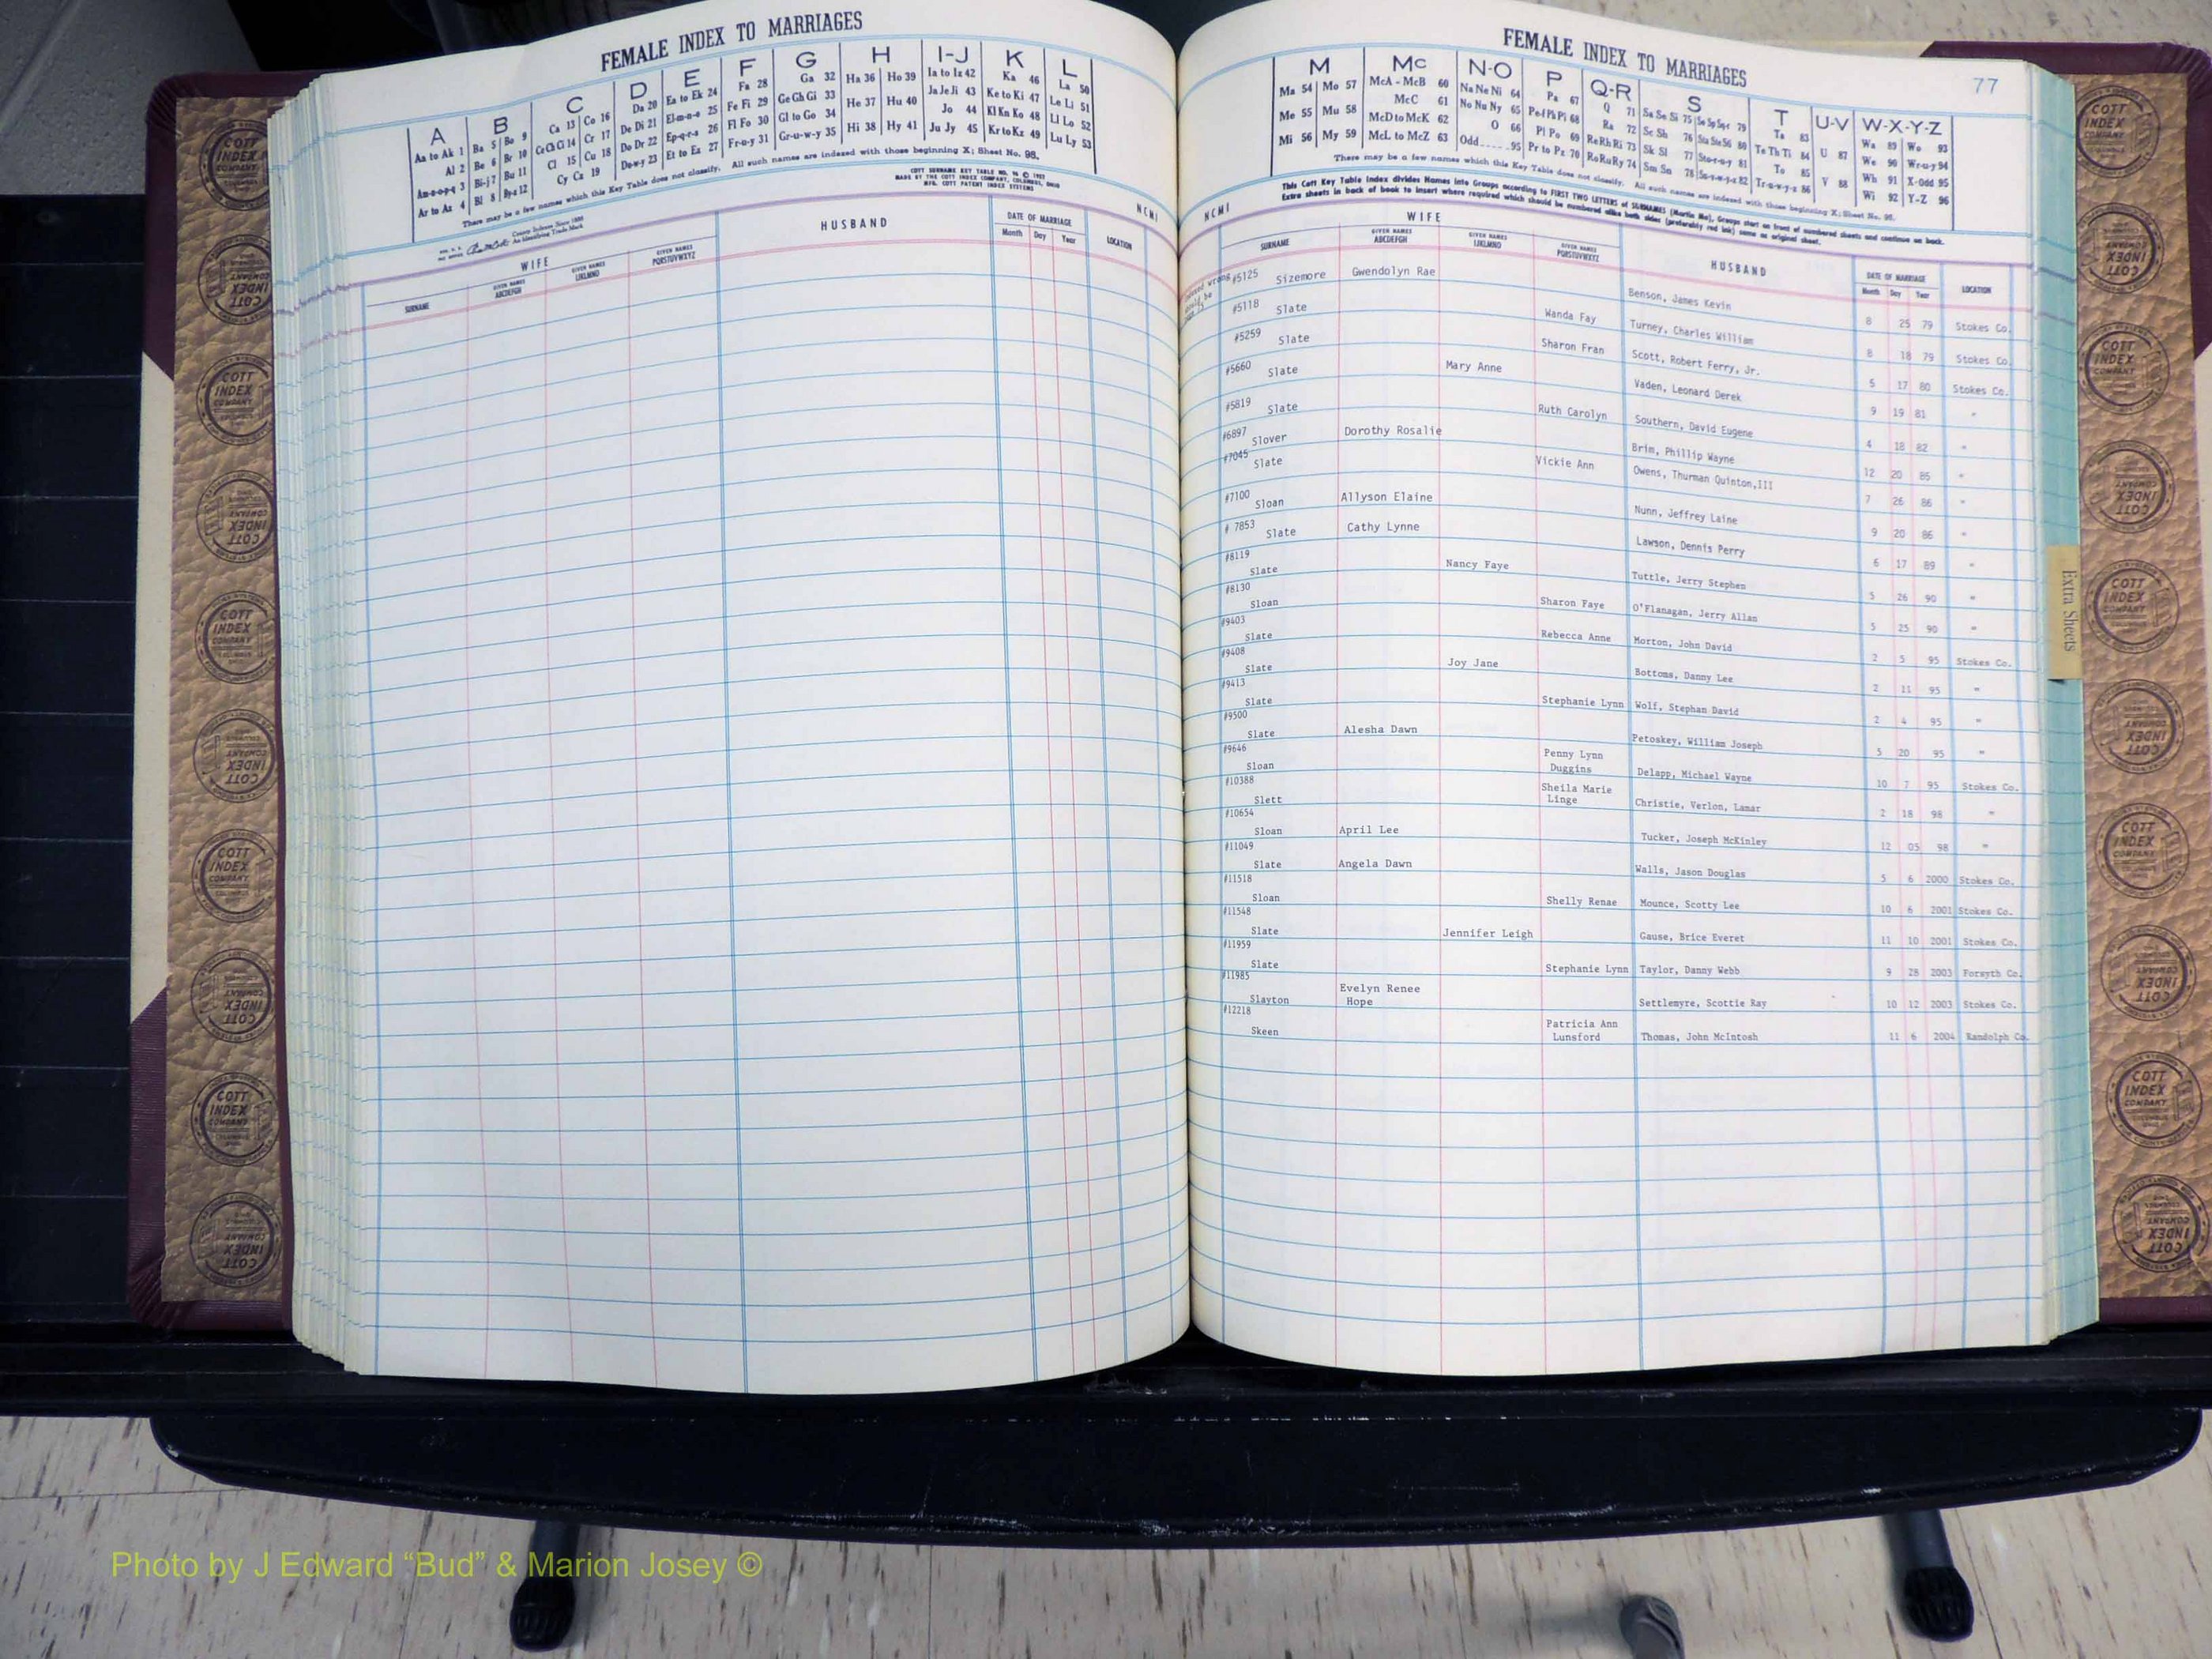 FEMALE INDEX TO MARRIAGES
A B C D E F G H I-J K L
Aa to Ak 1 Ba 5 Bo 9 Ca 13 Co 16 Da 20 Ea to Ek 24 Fa 28 Ga 32 Ha 36 Ho 39 Ia to Iz 42 Ka 46 La 50
Al 2 Be 6 Br 10 Ce Ch Ci 14 Cr 17 De Di 21 El-m-n-o 25 Fe Fi 29 Ge Gh Gi 33 He 37 Hu 40 Ja Je Ji 43 Ke to Ki 47 Le Li 51
An-o-p-q 3 Bi-j 7 Bu 11 Cl 15 Cu 18 Do Dr 22 Ep-q-r-s 26 Fl Fo 30 Gl to Go 34 Hi 38 Hy 41 Jo 44 Kl Kn Ko 48 Ll Lo 52
Ar to Az 4 Bl 8 By-z 12 Cy Cz 19 Du-w-y 23 Et to Ez 27 Fr-u-y 31 Gr-u-w-y 35 Ju Jy 45 Kr to Kz 49 Lu Ly 53
There may be a few names which this Key Table does not classify. All such names are indexed with those beginning X; Sheet No. 95.
COTT SURNAME KEY TABLE NO. 96 © 1957
MADE BY THE COTT INDEX COMPANY, COLUMBUS, OHIO
MFG. COTT PATENT INDEX SYSTEMS
NCMI
WIFE HUSBAND DATE OF MARRIAGE LOCATION
SURNAME GIVEN NAMES ABCDEFGH GIVEN NAMES IJKLMNO GIVEN NAMES PQRSTUVWXYZ Month Day Year
FEMALE INDEX TO MARRIAGES
77
M Mc N-O P Q-R S T U-V W-X-Y-Z
Ma 54 Mo 57 McA - McB 60 Na Ne Ni 64 Pa 67 Q 71 Sa Se Si 75 So Sp Sq-r 79 Ta 83 U 87 Wa 89 Wo 93
Me 55 Mu 58 McC 61 No Nu Ny 65 Pe-f Ph Pi 68 Ra 72 Sc Sh 76 Sta Ste Sti 80 Te Th Ti 84 V 88 We 90 Wr-u-y 94
Mi 56 My 59 McD to McK 62 O 66 Pl Po 69 Re Rh Ri 73 Sk Sl 77 Sto-r-u-y 81 To 85 Wh 91 X-Odd 95
McL to McZ 63 Odd 95 Pr to Pz 70 Ro Ru Ry 74 Sm Sn 78 Su-v-w-y-z 82 Tr-u-w-y-z 86 Wi 92 Y-Z 96
There may be a few names which this Key Table does not classify. All such names are indexed with those beginning X; Sheet No. 95.
This Cott Key Table Index divides Names into Groups according to FIRST TWO LETTERS of SURNAMES (Martin Ma), Groups start on front of numbered sheets and continue on back.
Extra sheets in back of book to insert where required which should be numbered alike both sides (preferably red ink) same as original sheet.
NCMI
WIFE HUSBAND DATE OF MARRIAGE LOCATION
SURNAME GIVEN NAMES ABCDEFGH GIVEN NAMES IJKLMNO GIVEN NAMES PQRSTUVWXYZ Month Day Year
Indexed wrong should be page 75
#5125 Sizemore Gwendolyn Rae Benson, James Kevin 8 25 79 Stokes Co.
#5118 Slate Wanda Fay Turney, Charles William 8 18 79 Stokes Co.
#5259 Slate Sharon Fran Scott, Robert Ferry, Jr. 5 17 80 Stokes Co.
#5660 Slate Mary Anne Vaden, Leonard Derek 9 19 81 "
#5819 Slate Ruth Carolyn Southern, David Eugene 4 18 82 "
#6897 Slover Dorothy Rosalie Brim, Phillip Wayne 12 20 85 "
#7045 Slate Vickie Ann Owens, Thurman Quinton,III 7 26 86 "
#7100 Sloan Allyson Elaine Nunn, Jeffrey Laine 9 20 86 "
# 7853 Slate Cathy Lynne Lawson, Dennis Perry 6 17 89 "
#8119 Slate Nancy Faye Tuttle, Jerry Stephen 5 26 90 "
#8130 Sloan Sharon Faye O'Flanagan, Jerry Allan 5 25 90 "
#9403 Slate Rebecca Anne Morton, John David 2 5 95 Stokes Co.
#9408 Slate Joy Jane Bottoms, Danny Lee 2 11 95 "
#9413 Slate Stephanie Lynn Wolf, Stephan David 2 4 95 "
#9500 Slate Alesha Dawn Petoskey, William Joseph 5 20 95 "
#9646 Sloan Penny Lynn Duggins Delapp, Michael Wayne 10 7 95 Stokes Co.
#10388 Slett Sheila Marie Linge Christie, Verlon, Lamar 2 18 98 "
#10654 Sloan April Lee Tucker, Joseph McKinley 12 05 98 "
#11049 Slate Angela Dawn Walls, Jason Douglas 5 6 2000 Stokes Co.
#11518 Sloan Shelly Renae Mounce, Scotty Lee 10 6 2001 Stokes Co.
#11548 Slate Jennifer Leigh Gause, Brice Everet 11 10 2001 Stokes Co.
#11959 Slate Stephanie Lynn Taylor, Danny Webb 9 28 2003 Forsyth Co.
#11985 Slayton Evelyn Renee Hope Settlemyre, Scottie Ray 10 12 2003 Stokes Co.
#12218 Skeen Patricia Ann Lunsford Thomas, John McIntosh 11 6 2004 Randolph Co.
Extra Sheets
COTT INDEX COMPANY
Photo by J Edward “Bud” & Marion Josey ©